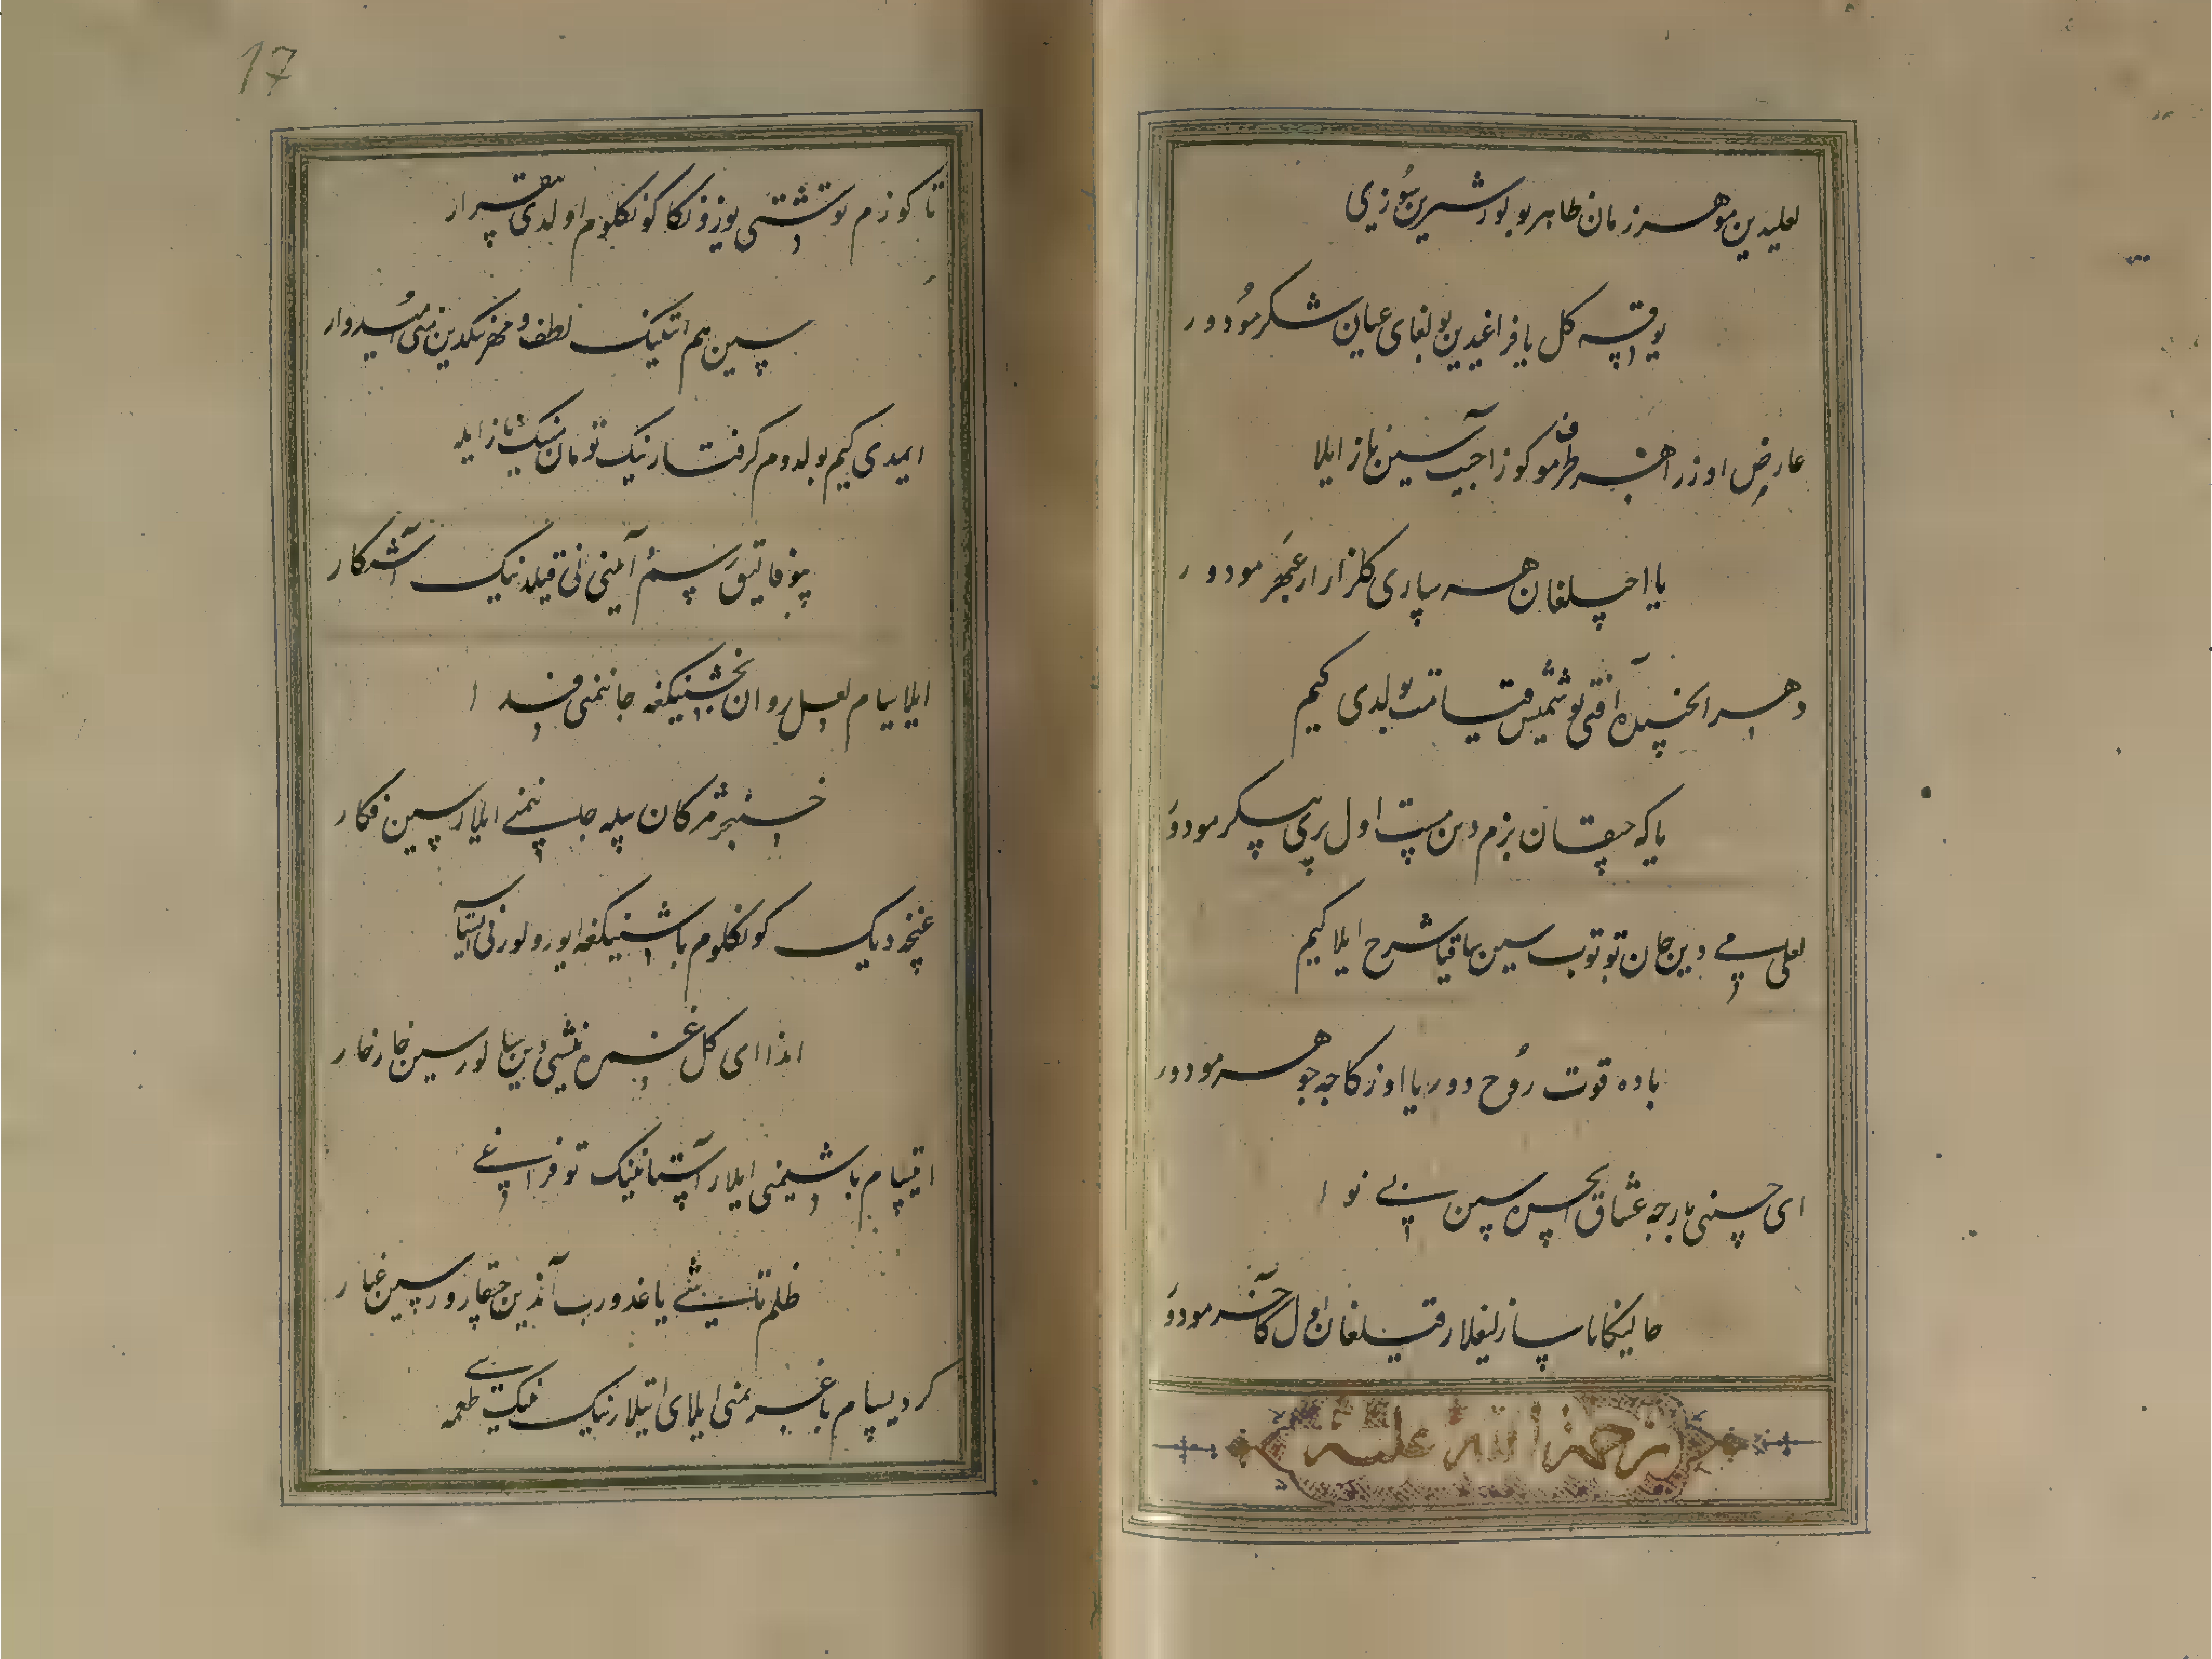 لعلیدین مو هر زمان ظاهر بولور شیرین سوزی
یوقسه کل یافراغیدین بولغای عیان شکر مودور
عارض اوزره قطره مو کوز اجیب سین ناز ایلا
یا اچیلغان هر ساری کلزار ارا عبهر مودور
دهر ایچیده آفتی توشمیش قیامت بولدی کیم
یا که چیقان بزم دین مست اول پری پیکر مودور
لعلی می دین جان توتوب سین ساقیا شرح ایلا کیم
باده قوت روح دور یا اوزکاجه جوهر مودور
ای حسینی بارجه عشاق ایجره سین سین بی نوا
حالینکا ناسازلیغلار قیلغان اول کافر مودور
رحمة الله علیه
17
تا کوزم توشتی یوزونکا کونکلوم اولدی بیقرار
سین هم ایتینک لطف و مهرینکدین منی امیدوار
ایمدی کیم بولدوم کرفتارینک تومان مینک ناز ایله
بیوفالیق رسم آیینی نی قیلدینک آشکار
ایلاسام لعل روان بخشینکغه جانیمنی فدا
خنجر مژکان بیله جانیمنی ایلارسین فکار
غنچه دیک کونکلوم باشینکغه ایورولورنی ایستاسه
اندا ای کل غمزه نیشی دین سالورسین خارخار
ایتسام باشیمنی ایلار آستانینک توفراغی
ظلم تاشی یاغدوروب آندین چیقارورسین غبار
کر دیسام باغریمنی ایلای ایتلارینک نینک طعمه سی